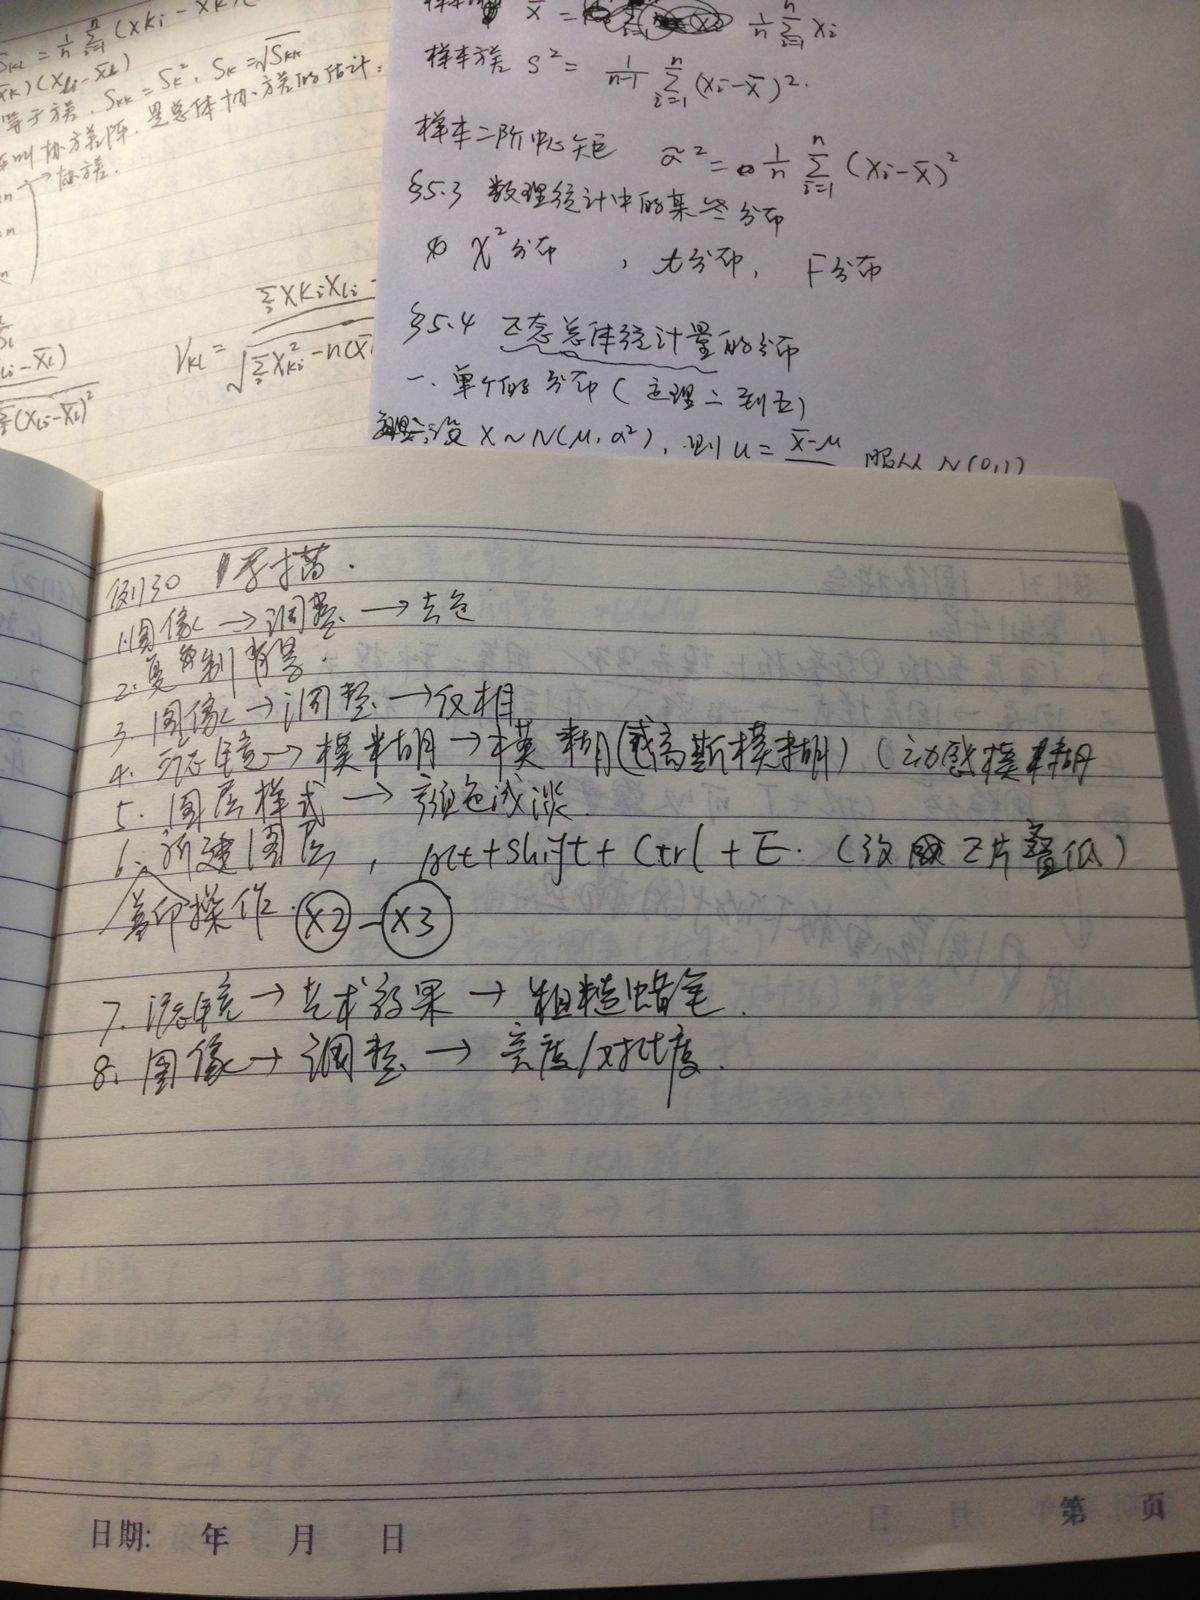 SKL = 1/n Σ(i=1→n) (XKi - XK
XK)(XLi - X̄L)
等于方差. SKK = SK², SK = √SKK
叫协方差阵, 是总体协方差的估计.
协方差.
ΣXKiXLi -
rKL =
√ΣXKi² - n(X̄
Li - X̄L)
Σ(XLi - X̄L)²
X̄ = 1/n Σ(i=1→n) Xi
样本方差 S² = 1/(n-1) Σ(i=1→n) (Xi - X̄)².
样本二阶中心矩 σ̃² = 1/n Σ(i=1→n) (Xi - X̄)²
§5.3 数理统计中的某些分布
χ²分布, t分布, F分布
§5.4 正态总体统计量的分布
一. 单个的分布(定理二到五)
设 X~N(μ, σ²), 则 u = X̄-μ 服从 N(0,1)
例30 素描.
1.图像→调整→去色
2.复制背景.
3. 图像→调整→反相
4. 滤镜→模糊→模糊(或高斯模糊) (动感模糊
5. 图层样式→颜色减淡.
6. 新建图层, Alt+Shift+Ctrl+E.
盖印操作. X2 - X3
7. 滤镜→艺术效果→粗糙蜡笔.
8. 图像→调整→亮度/对比度.
日期: 年 月 日
第 页